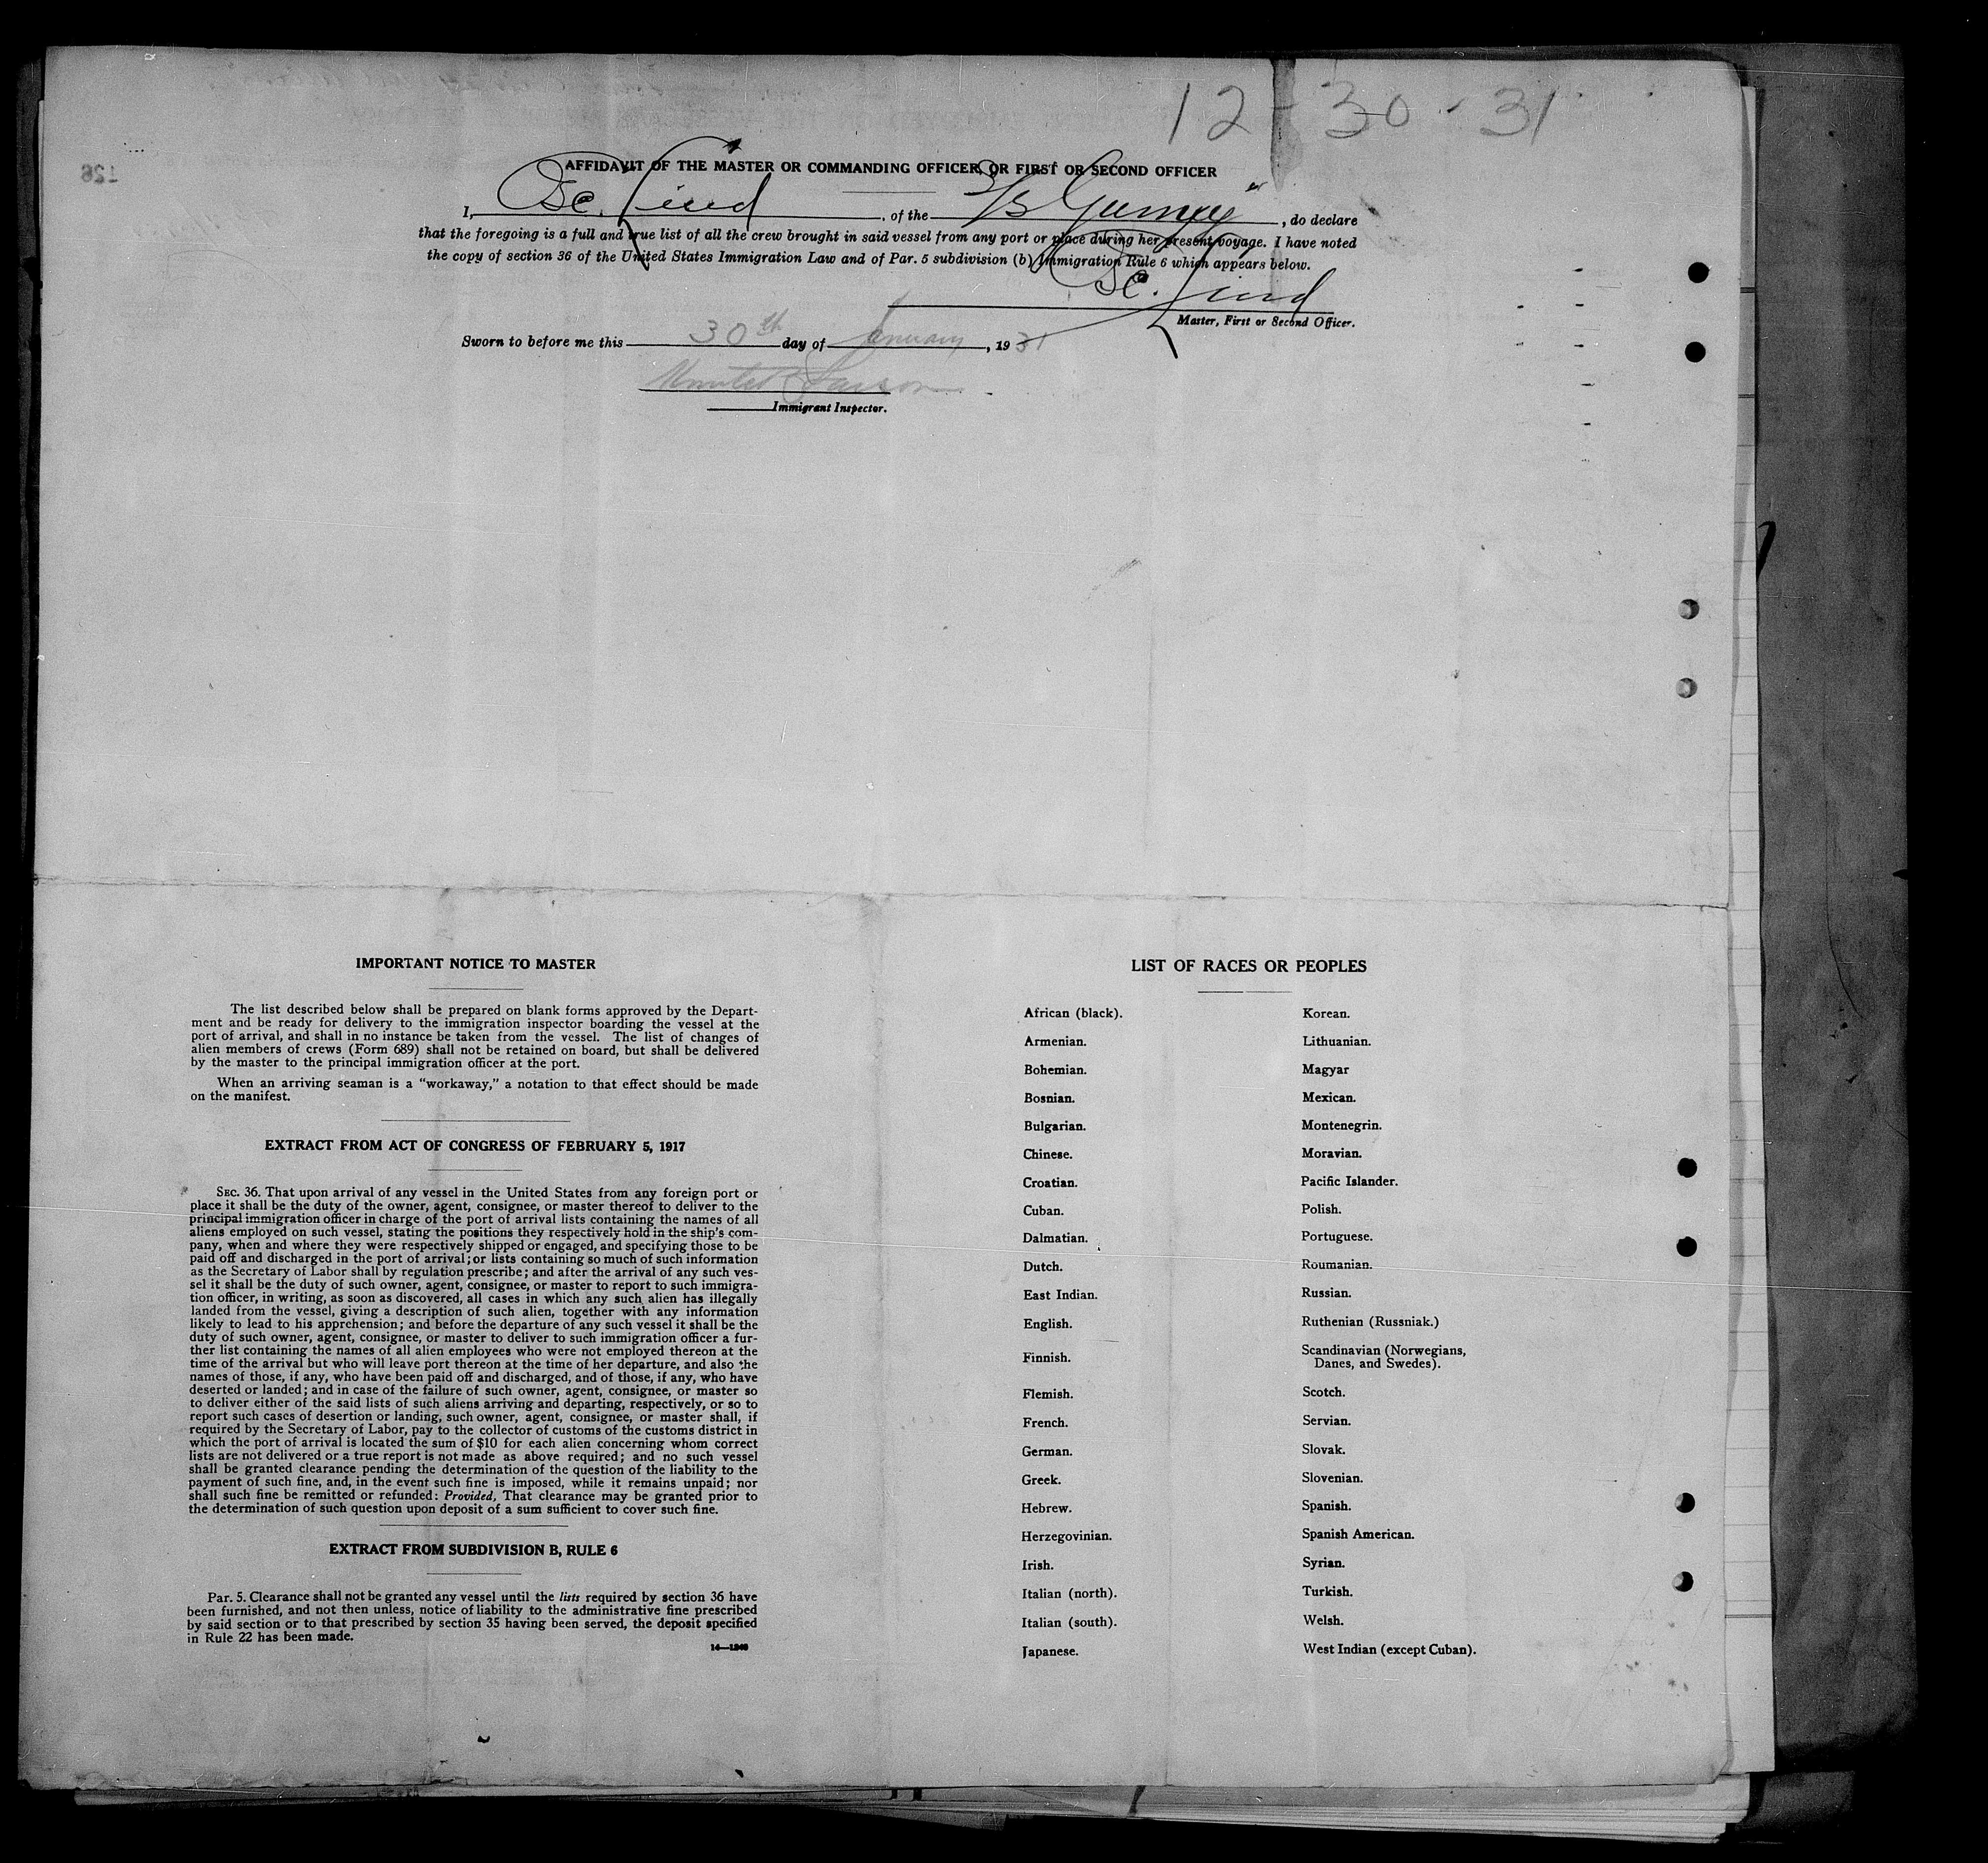 12-30-31
126
AFFIDAVIT OF THE MASTER OR COMMANDING OFFICER, OR FIRST OR SECOND OFFICER
I, Osc. Lind, of the S/S , do declare
that the foregoing is a full and true list of all the crew brought in said vessel from any port or place during her present voyage. I have noted
the copy of section 36 of the United States Immigration Law and of Par. 5 subdivision (b) Immigration Rule 6 which appears below.
Osc. Lind
Master, First or Second Officer.
Sworn to before me this 30th day of January, 1931
Immigrant Inspector.
IMPORTANT NOTICE TO MASTER
The list described below shall be prepared on blank forms approved by the Depart-
ment and be ready for delivery to the immigration inspector boarding the vessel at the
port of arrival, and shall in no instance be taken from the vessel. The list of changes of
alien members of crews (Form 689) shall not be retained on board, but shall be delivered
by the master to the principal immigration officer at the port.
When an arriving seaman is a "workaway," a notation to that effect should be made
on the manifest.
EXTRACT FROM ACT OF CONGRESS OF FEBRUARY 5, 1917
SEC. 36. That upon arrival of any vessel in the United States from any foreign port or
place it shall be the duty of the owner, agent, consignee, or master thereof to deliver to the
principal immigration officer in charge of the port of arrival lists containing the names of all
aliens employed on such vessel, stating the positions they respectively hold in the ship's com-
pany, when and where they were respectively shipped or engaged, and specifying those to be
paid off and discharged in the port of arrival; or lists containing so much of such information
as the Secretary of Labor shall by regulation prescribe; and after the arrival of any such ves-
sel it shall be the duty of such owner, agent, consignee, or master to report to such immigra-
tion officer, in writing, as soon as discovered, all cases in which any such alien has illegally
landed from the vessel, giving a description of such alien, together with any information
likely to lead to his apprehension; and before the departure of any such vessel it shall be the
duty of such owner, agent, consignee, or master to deliver to such immigration officer a fur-
ther list containing the names of all alien employees who were not employed thereon at the
time of the arrival but who will leave port thereon at the time of her departure, and also the
names of those, if any, who have been paid off and discharged, and of those, if any, who have
deserted or landed; and in case of the failure of such owner, agent, consignee, or master so
to deliver either of the said lists of such aliens arriving and departing, respectively, or so to
report such cases of desertion or landing, such owner, agent, consignee, or master shall, if
required by the Secretary of Labor, pay to the collector of customs of the customs district in
which the port of arrival is located the sum of $10 for each alien concerning whom correct
lists are not delivered or a true report is not made as above required; and no such vessel
shall be granted clearance pending the determination of the question of the liability to the
payment of such fine, and, in the event such fine is imposed, while it remains unpaid; nor
shall such fine be remitted or refunded: Provided, That clearance may be granted prior to
the determination of such question upon deposit of a sum sufficient to cover such fine.
EXTRACT FROM SUBDIVISION B, RULE 6
Par. 5. Clearance shall not be granted any vessel until the lists required by section 36 have
been furnished, and not then unless, notice of liability to the administrative fine prescribed
by said section or to that prescribed by section 35 having been served, the deposit specified
in Rule 22 has been made.
LIST OF RACES OR PEOPLES
African (black).
Armenian.
Bohemian.
Bosnian.
Bulgarian.
Chinese.
Croatian.
Cuban.
Dalmatian.
Dutch.
East Indian.
English.
Finnish.
Flemish.
French.
German.
Greek.
Hebrew.
Herzegovinian.
Irish.
Italian (north).
Italian (south).
Japanese.
Korean.
Lithuanian.
Magyar
Mexican.
Montenegrin.
Moravian.
Pacific Islander.
Polish.
Portuguese.
Roumanian.
Russian.
Ruthenian (Russniak.)
Scandinavian (Norwegians,
Danes, and Swedes).
Scotch.
Servian.
Slovak.
Slovenian.
Spanish.
Spanish American.
Syrian.
Turkish.
Welsh.
West Indian (except Cuban).